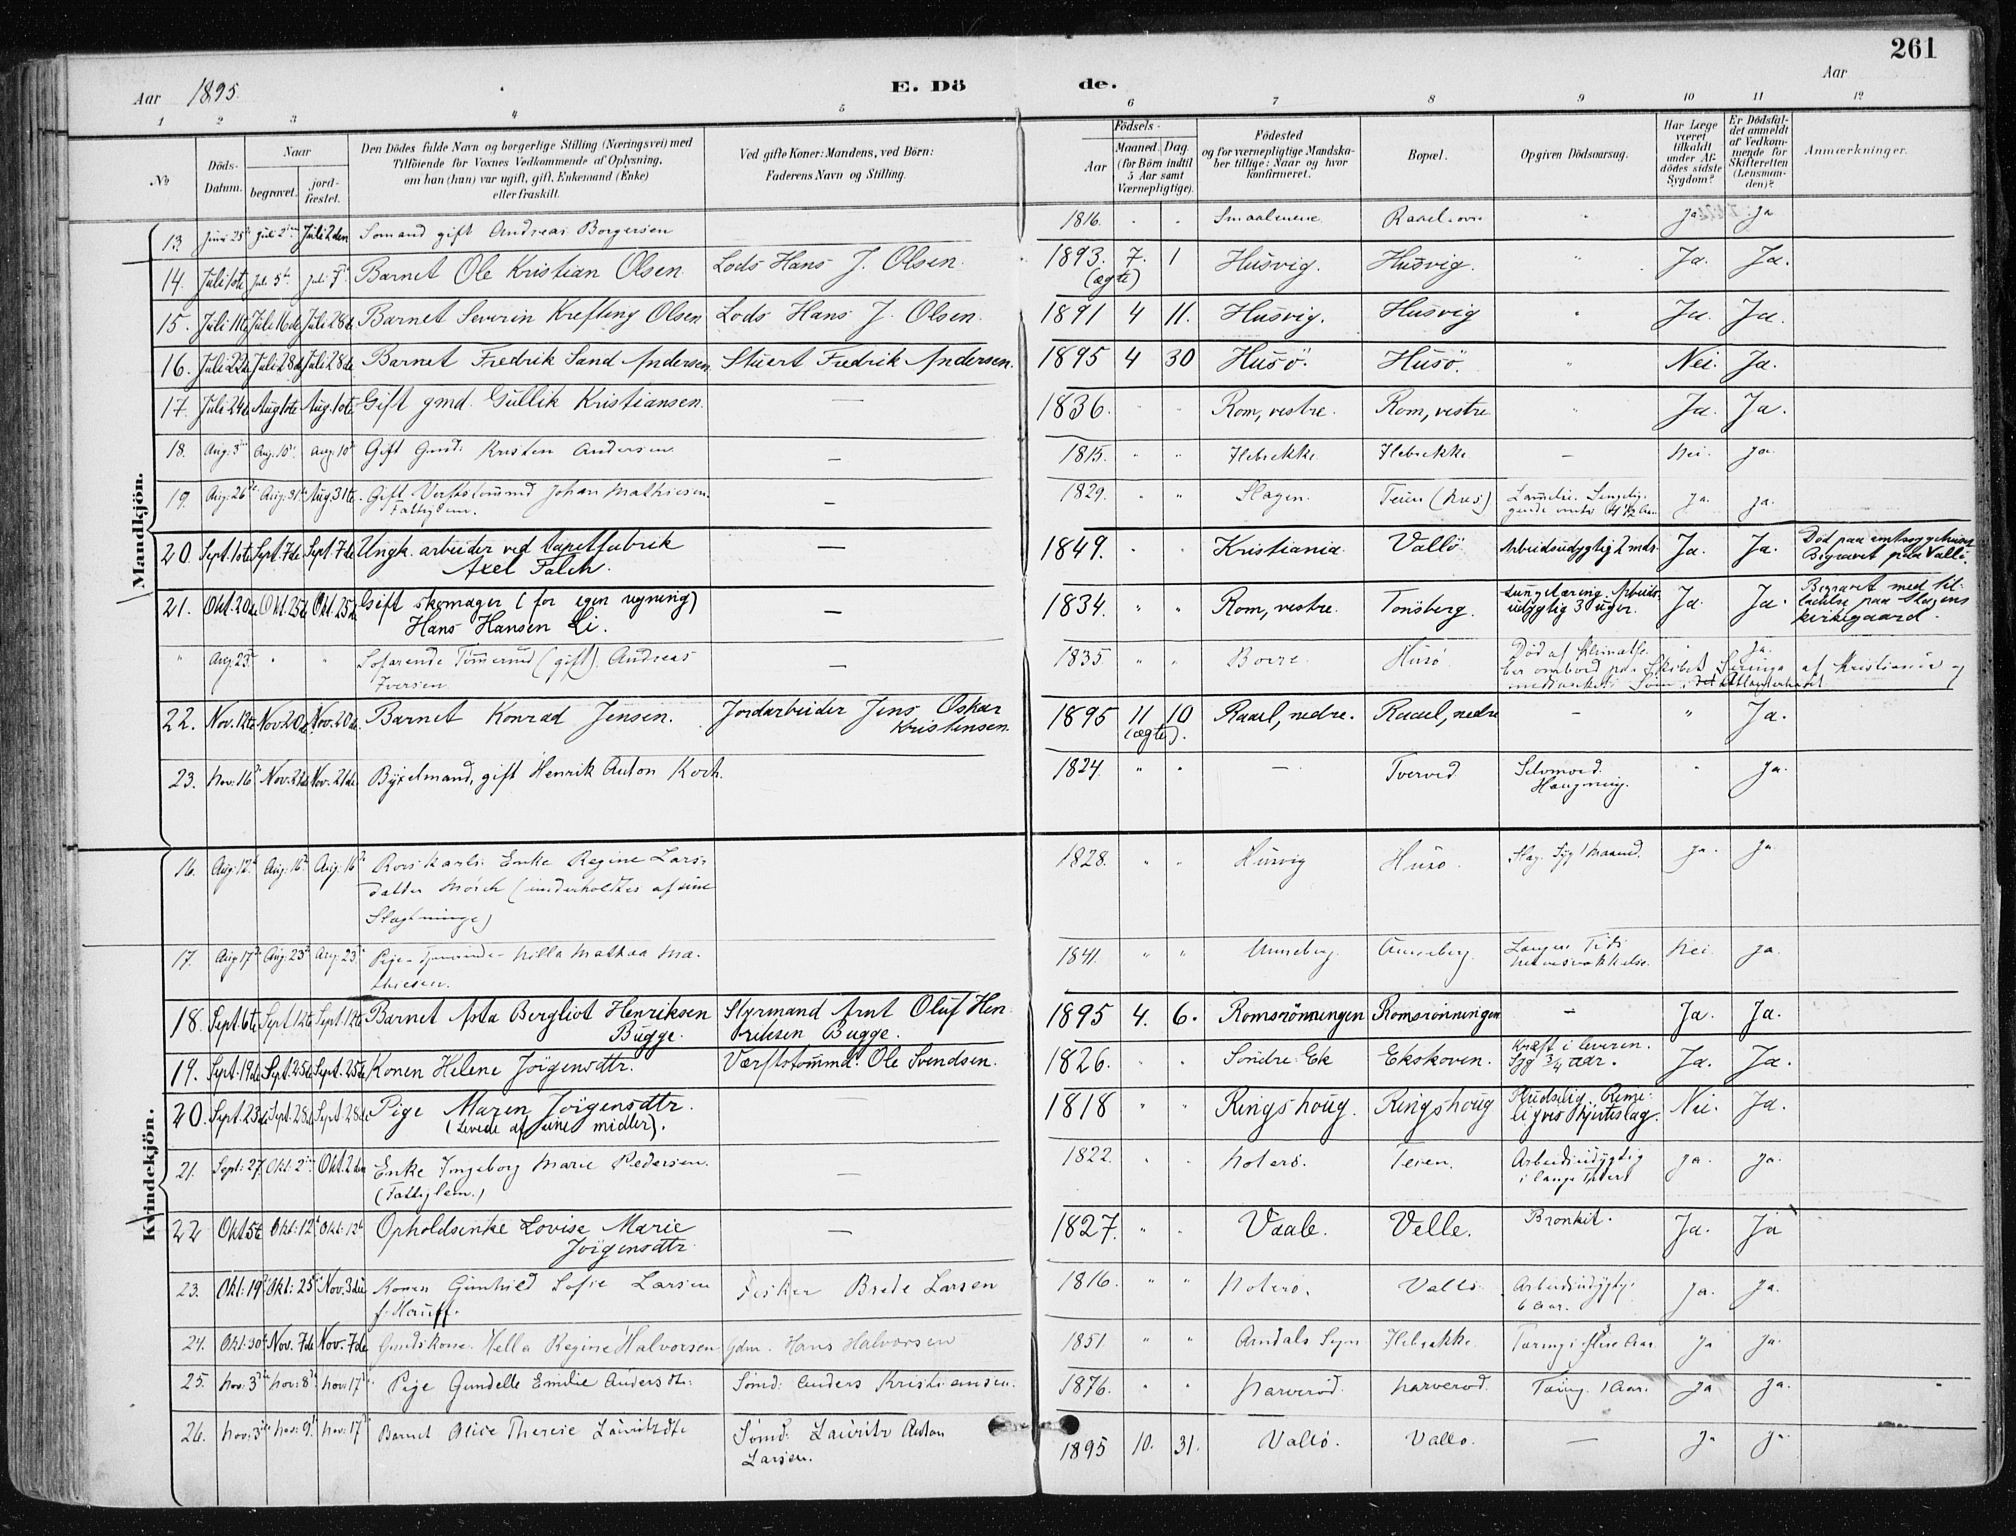 261
Aar 1895. E. Dö de. Aar
1 2 3 4 5 6 7 8 9 10 11 12
No
Döds-Datum.
Naar
begravet.
jordfæstet.
Den Dödes fulde Navn og borgerlige Stilling (Næringsvei) med
Tilföiende for Voxnes Vedkommende af Oplysning,
om han (hun) var ugift, gift, Enkemand (Enke)
eller fraskilt.
Ved gifte Koner: Mandens, ved Börn:
Faderens Navn og Stilling.
Födsels-
Aar
Maaned. Dag.
(for Börn indtil
5 Aar samt
Værnepligtige).
Födested
og for værnepligtige Mandskaber tillige: Naar og hvor
konfirmeret.
Bopæl.
Opgiven Dödsaarsag.
Har Læge
været
tilkaldt
under Afdödes sidste
Sygdom?
Er Dödsfaldet anmeldt
af Vedkommende for
Skifteretten
(Lensmanden)?
Anmærkninger.
Mandkjön.
13. Juni 25 Juli 2 Juli 2den Sömand gift Andreas Borgersen 1816. " " Smaalenene Raael " Ja Ja
14. Juli 1ste Juli 5te Juli Barnet Ole Kristian Olsen. Lods Hans J. Olsen. 1893. 7. 1 Husvig. Husvig. " Ja. Ja.
(ægte)
15. Juli 11te Juli 16de Juli 28de Barnet Severin Krefting Olsen Lods Hans J. Olsen. 1891 4 11. Husvig. Husvig " Ja. Ja.
16. Juli 22de Juli 28de Juli 28de Barnet Fredrik Sand Andersen Stuert Fredrik Andersen. 1895 4 30 Husö. Husö. " Nei. Ja.
17. Juli 24de Aug 1ste Aug. 10te Gift gmd. Gullik Kristiansen. — 1836. " " Rom, vestre. Rom, vestre " Ja. Ja.
18. Aug: 3 Aug. 10 Aug 10 Gift Gmd: Kristen Andersen — 1815. " " Ilebrekke Ilebrekke — Nei. Ja.
19. Aug: 26 Aug: 31 Aug. 31te Gift Verftstömmd Johan Mathiesen. — 1829. " " Slagen. Teien (hus) Ja. Ja.
Fattiglem.
20. Sept. 1ste Sept. 7de Sept. 7de Ungk. arbeider ved tapetfabrik — 1849. " " Kristiania Vallö Arbeidsudygtig 2 mdr. Ja. Ja. Död paa amtssygehuset
Axel Falch. Begravet paa Vallö.
21. Okt. 20de Okt. 25de Okt. 25de Gift skomager (for egen regning) — 1834. " " Rom, vestre. Tönsberg. Lungetæring. Arbeidsudygtig 3 uger. Ja. Ja. Begravet med tilladelse paa Slagens
Hans Hansen Li. kirkegaard.
" Aug. 25 " " Söfarende Tömmermd (gift). Andreas — 1835. " " Borre. Husö Död af Klimatfeber ombord paa Skibet Syringa af Kristiania og " Ja.
Iversen nedsænket i Söen i Atlanterhavet
22. Nov. 12te Nov 20de Nov. 20de Barnet Konrad Jensen. Jordarbeider Jens Oskar 1895 11 10 Raael, nedre. Raael, nedre — " Ja.
Kristensen (ægte).
23. Nov. 16 Nov. 21de Nov. 21de Byxelmand, gift Henrik Anton Koch. 1824. " " — Tverved Selvmord. " Ja.
Hængning.
Kvindekjön.
16. Aug: 12 Aug: 16 Aug: 16 Enke Regine Lars- 1828. " " Husvig Husö. Slag. Syg 1 Maaned. Ja. Ja.
datter Mörch (underholdtes af sine
Slægtninge)
17. Aug 17 Aug. 23 Aug. 23 Pige Milla Mathea Ma- 1841. " " Unneberg Unneberg. Nei. Ja.
thiesen.
18. Sept. 6te Sept 12te Sept. 12te Barnet Asta Bergliot Henriksen Styrmand Arnt Oluf Hen- 1895 4. 6. Romsrönningen Romsrönningen — Ja. Ja.
Bugge. riksen Bugge.
19. Sept. 19de Sept. 25de Sept. 25de Konen Helene Jörgensdtr. Værftstömmd. Ole Svendsen. 1826. " " Söndre Ek Ekskoven. Kræft i leveren. Ja. Ja.
Syg 3/4 aar.
20. Sept. 23de Sept. 28de Sept. 28de Pige Maren Jörgensdtr. — 1818 " " Ringshoug. Ringshoug Pludselig. Rime- Nei. Ja.
(Levede af sine midler). ligvis hjerteslag.
21. Sept: 27. Okt: 2 Okt. 2den Enke Ingeborg Marie Pedersen. — 1822. " " Noterö. Teien. Arbeidsudygtig Ja. Ja.
(Fattiglem.) i lange tider
22 Okt. 5te Okt: 12 Okt: 12 Opholdsenke Lovise Marie — 1827. " " Vaale. Velle. Bronkit. Ja. Ja
Jörgensdtr.
23. Okt: 19 Okt: 25 Nov. 3die Konen Gunhild Sofie Larsen Fisker Brede Larsen 1816. " " Noterö. Vallö. Arbeidsudygtig. Ja. Ja.
f. Hauff. 6 Aar.
24. Okt: 30 Nov. 7de Nov. 7de Gmdskone. Hella Regine Halvorsen Gdm. Hans Halvorsen 1851. " " Aadals Sogn Ilebrekke Tæring i flere Aar. Ja Ja.
25. Nov: 3 Nov: 8 Nov: 17 Pige Gundelle Emilie Andersdtr. Sömd: Anders Kristiansen. 1876. " " Narveröd. Narveröd. Tæring. 1 Aar. Ja Ja.
26. Nov: 3 Nov: 9 Nov: 17 Barnet Alice Therese Lauritzdtr Sömd: Lauritz Anton 1895 10. 31. Vallö. Vallö. — Ja Ja.
Larsen.